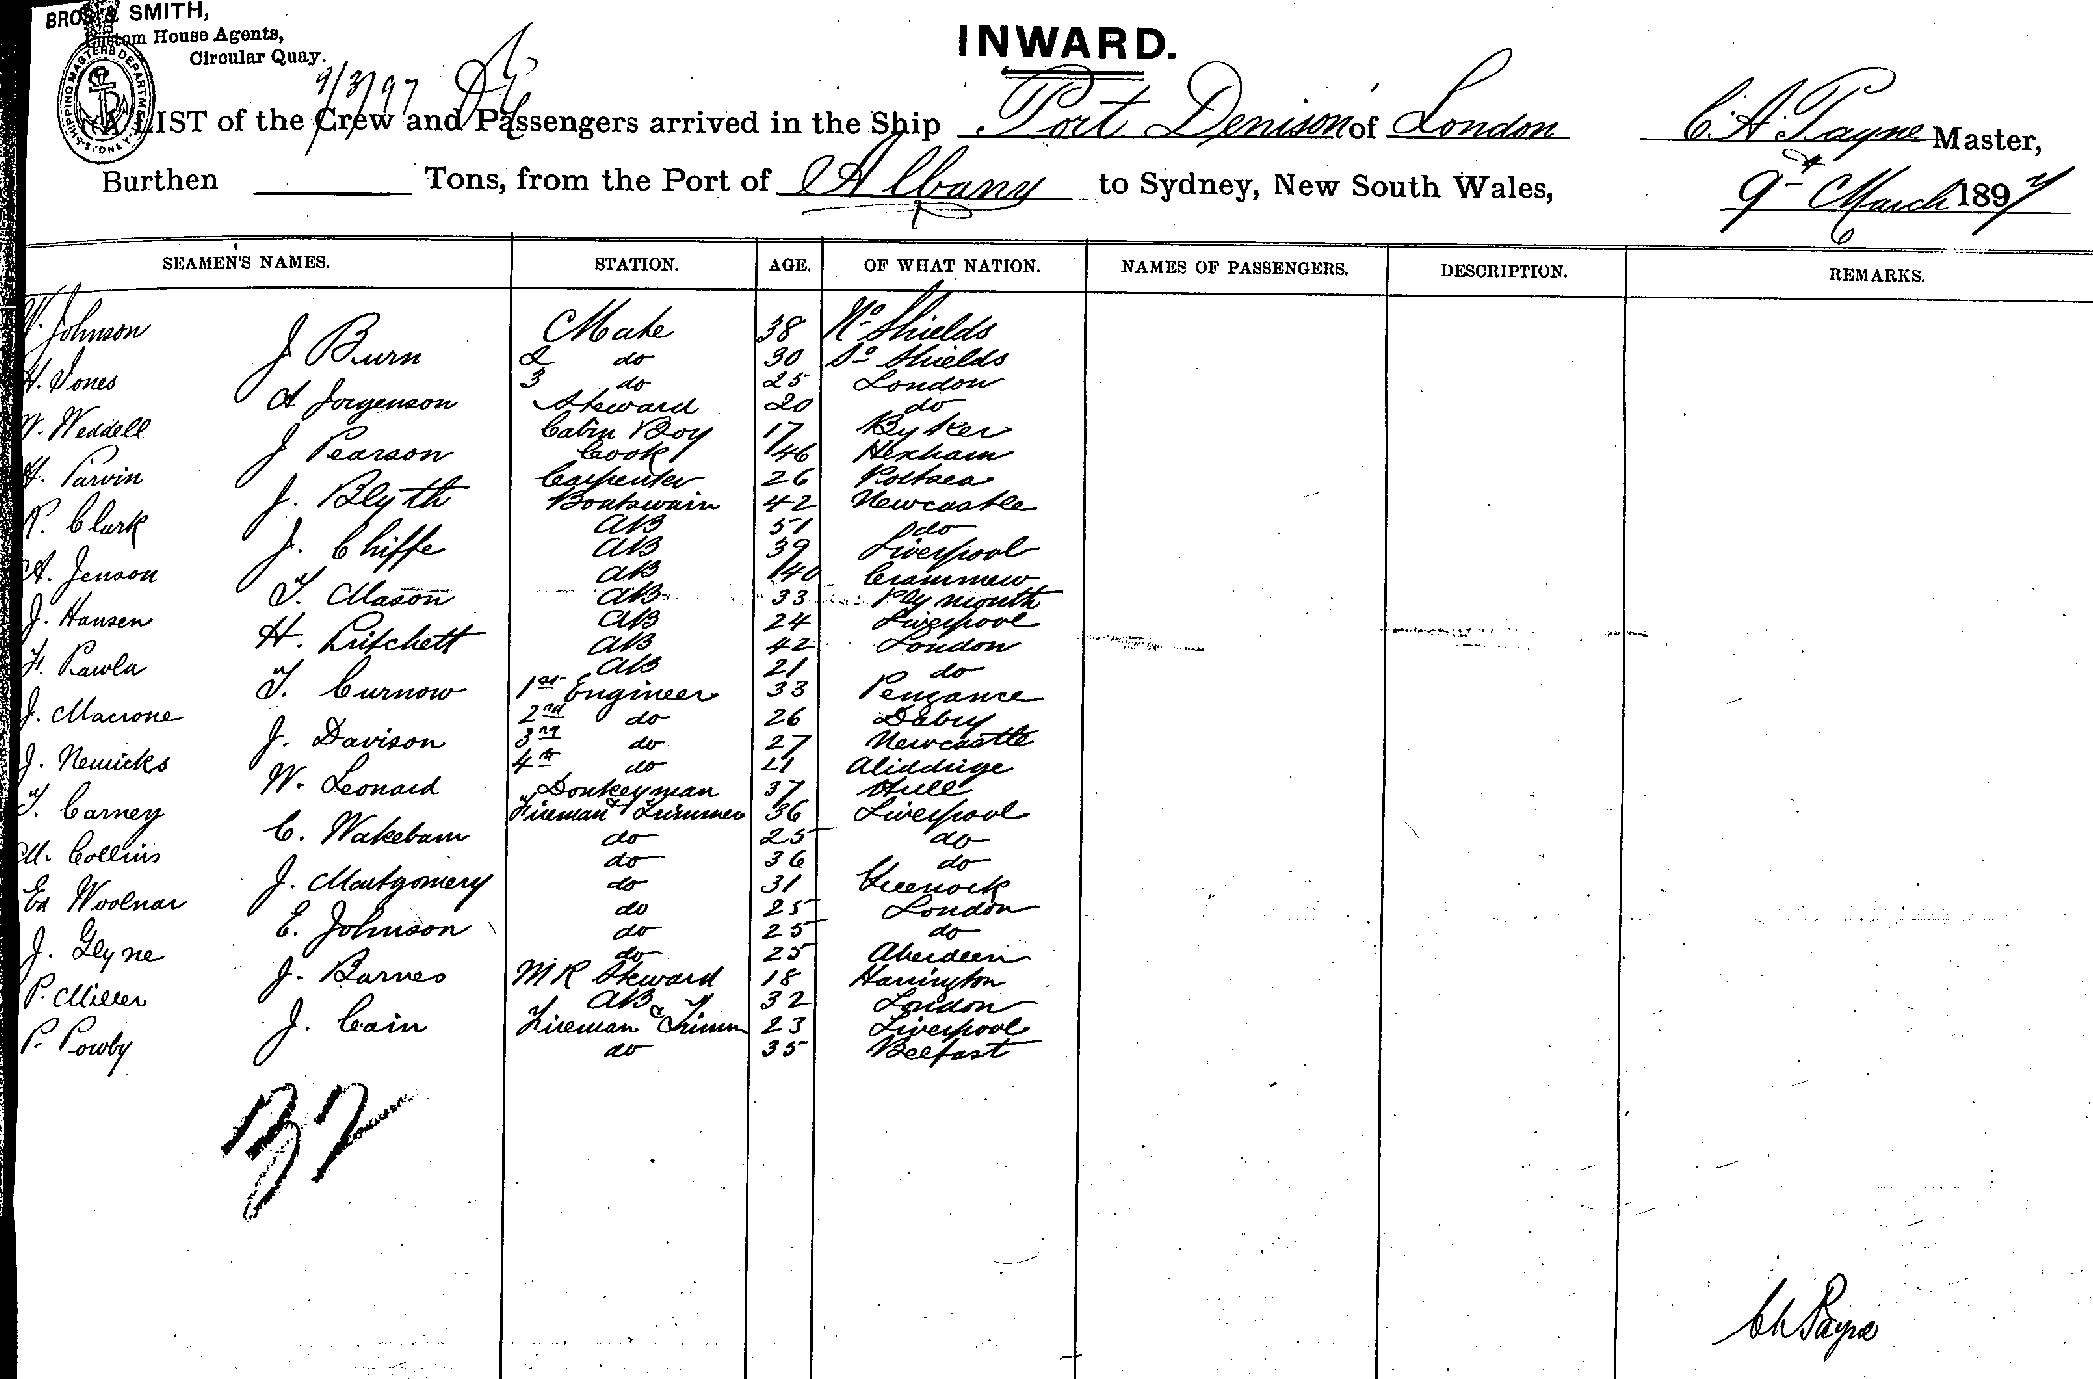 BROS. & SMITH,
Custom House Agents,
Circular Quay.
9/3/97
INWARD.
A LIST of the Crew and Passengers arrived in the Ship Port Denison of London C. A. Payne Master,
Burthen Tons, from the Port of Albany to Sydney, New South Wales, 9th March 1897
SEAMEN'S NAMES. STATION. AGE. OF WHAT NATION. NAMES OF PASSENGERS. DESCRIPTION. REMARKS.
W. Johnson Mate 38 No. Shields
J Burn 2 do 30 So. Shields
H. Jones 3 do 25 London
A Jorgenson Steward 20 do
W. Weddell Cabin Boy 17 Byker
J Pearson Cook 46 Hexham
H. Parvin Carpenter 26 Portsea
J. Blyth Boatswain 42 Newcastle
R. Clark AB 51 do
J. Chiffe AB 39 Liverpool
A. Jenson AB 40
T. Mason AB 33 Plymouth
J. Hansen AB 24 Liverpool
H. Pritchett AB 42 London
F. Rawla AB 21 do
T. Curnow 1st Engineer 33 Penzance
J. Macrone 2nd do 26
J. Davison 3rd do 27 Newcastle
J. 4th do 21
W. Leonard Donkeyman 37 Hull
T. Carney Fireman & Trimmer 36 Liverpool
C. Wakeham do 25 do
M. Collins do 36 do
J. Montgomery do 31 Greenock
Ed Woolnar do 25 London
E. Johnson do 25 do
J. Glyne do 25 Aberdeen
J. Barnes M R Steward 18 Harrington
P. Miller AB 32 London
J. Cain Fireman & Trimm 23 Liverpool
P. Powby do 35 Belfast
C A Payne